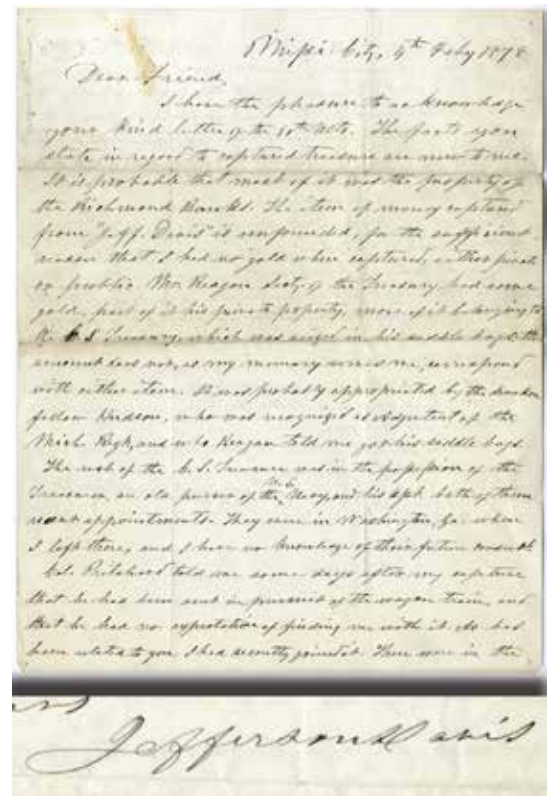 Missi. City, 4th Feby 1878
Dear Friend,
I have the pleasure to acknowledge
your kind letter of the Ulto. The facts you
state in regard to captured treasure are new to me.
It is probable that most of it was the property of
the Richmond Banks. The item of money captured
from "Jeff. Davis" is unfounded, for the sufficient
reason that I had no gold when captured, either private
or public. Mr. Reagan Secty. of the Treasury had some
gold, part of it his private property, more of it belonging to
the C. S. Treasury, which was seized in his saddle bags, the
amount does not, as my memory serves me, correspond
with either item. It was probably appropriated by the
fellow Hudson, who was recognized as Adjutant of the
Mich. Regt, and who Reagan told me got his saddle bags.
The rest of the C. S. Treasure was in the possession of the
Treasurer, an old purser of the U.S. Navy, and his both of them
appointments. They were in Washington, Ga. when
I left there, and I have no knowledge of their future conduct.
Col. Pritchard told me some days after my capture
that he had been sent in pursuit of the wagon train, and
that he had no expectation of finding me with it. As has
been related to you I had recently joined it. There were in the
Jefferson Davis